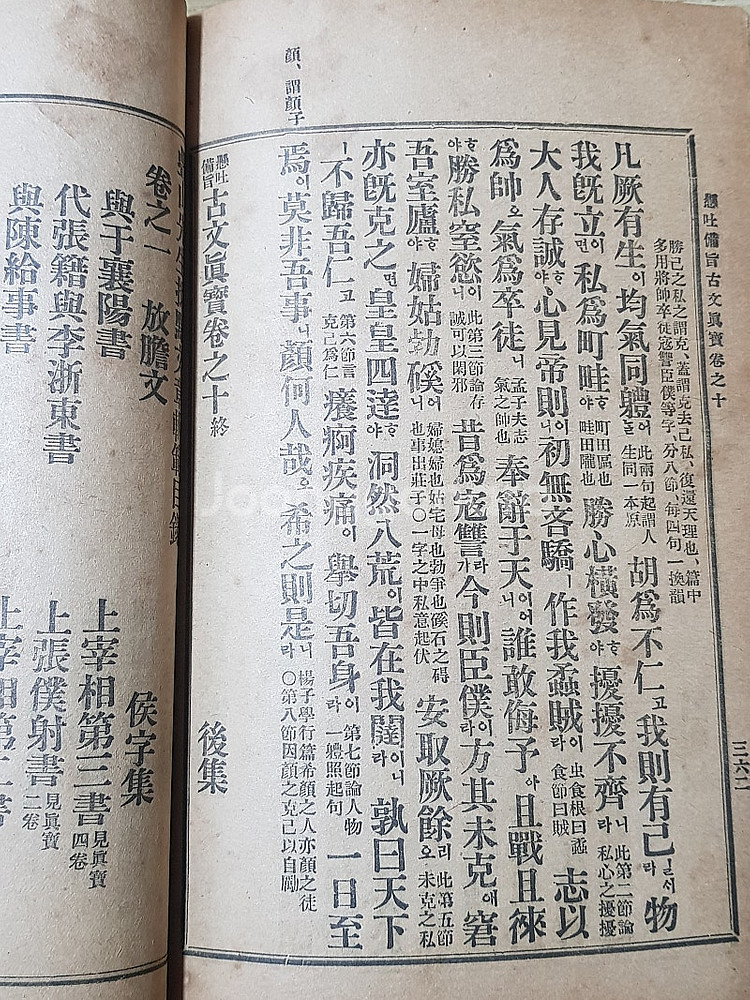 懸吐備旨古文眞寶卷之十 三六二
勝己之私之謂克、蓋謂克去己私、復還天理也、篇中
多用將帥卒徒寇讐臣僕等字、分八節、每四句一換韻
凡厥有生이均氣同軆어늘此兩句起謂人生同一本原胡爲不仁고我則有己라일서物
我旣立이면私爲町畦ᄒᆞ야町田區也畦田隴也勝心橫發ᄒᆞ야擾擾不齊니라此第二節論私心之擾擾
大人存誠ᄒᆞ야心見帝則ᄒᆞ니初無吝驕ㅣ作我蟊賊이라虫食根曰蟊食節曰賊志以
爲帥오氣爲卒徒니孟子夫志氣之帥也奉辭于天이어니誰敢侮予야且戰且徠
ᄒᆞ야勝私窒慾이니此第三節論存誠可以閑邪昔爲寇讐라가今則臣僕이라方其未克애窘
吾室廬ᄒᆞ야婦姑勃磎어니婦媳婦也姑宅母也勃爭也磎石之碍也事出莊子〇一字之中私意起伏安取厥餘리오此第五節未克之私
亦旣克之면皇皇四達ᄒᆞ야洞然八荒이皆在我闥이니라孰曰天下
ㅣ不歸吾仁고第六節言克己爲仁癢痾疾痛이擧切吾身이라第七節論人物一軆照起句一日至
焉이莫非吾事니顔何人哉오希之則是니라楊子學行篇希顔之人亦顔之徒〇第八節因顔之克己以自勵
顔、謂顔子
懸吐備旨古文眞寶卷之十終 後集
卷之一 放膽文 侯字集
與于襄陽書 上宰相第三書見眞寶四卷
代張籍與李浙東書 上張僕射書見眞寶二卷
與陳給事書